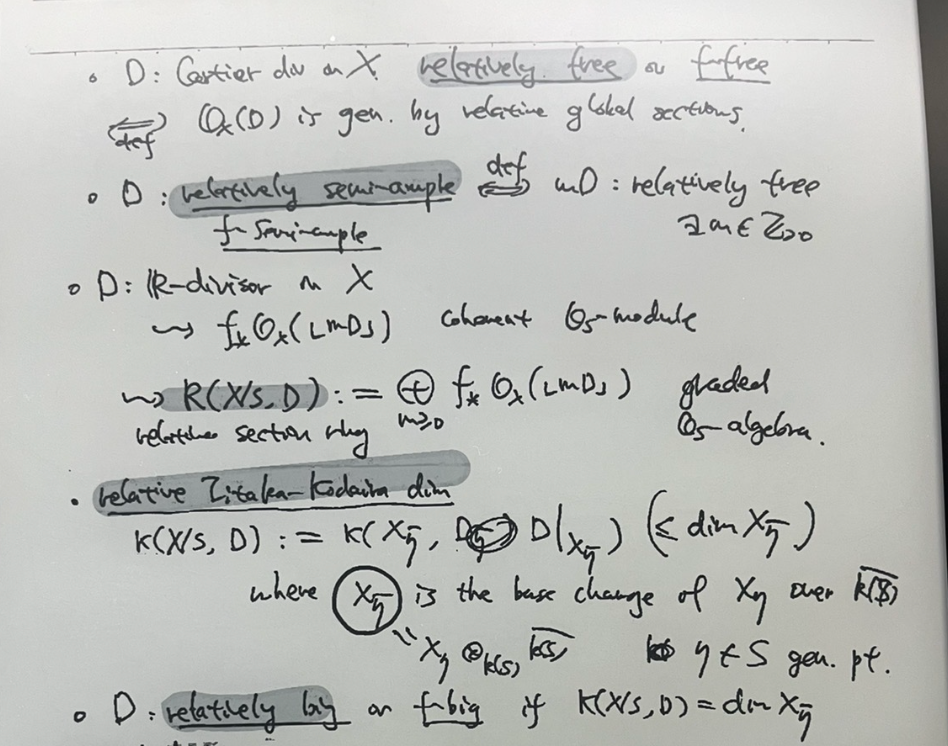 ◦ D : Cartier div on X relatively free or f-free
⟺def O_X(D) is gen. by relative global sections.
◦ D : relatively semi-ample ⟺def mD : relatively free
f-semi-ample ∃m ∈ Z_{>0}
◦ D : R-divisor on X
⇝ f_* O_X(⌊mD⌋) coherent O_S-module
⇝ R(X/S, D) := ⊕_{m≥0} f_* O_X(⌊mD⌋) graded
relative section ring O_S-algebra.
• relative Iitaka-Kodaira dim
κ(X/S, D) := κ(X_η̄, D|_{X_η̄}) (≤ dim X_η̄)
where X_η̄ is the base change of X_η over \overline{k(S)}
" X_η ⊗_{k(S)} \overline{k(S)} η ∈ S gen. pt.
◦ D : relatively big or f-big if κ(X/S, D) = dim X_η̄